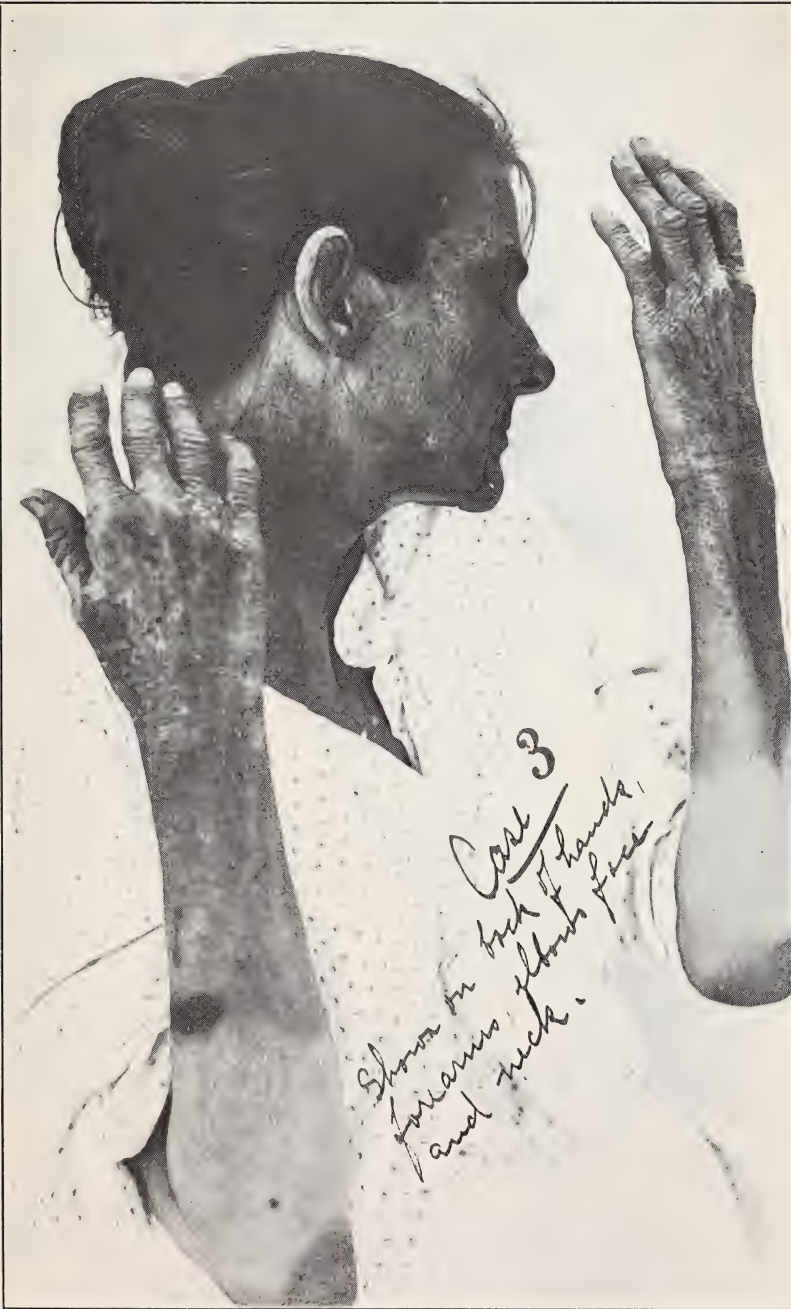 Case 3
Shown on back of hands,
forearms, elbows face
and neck.